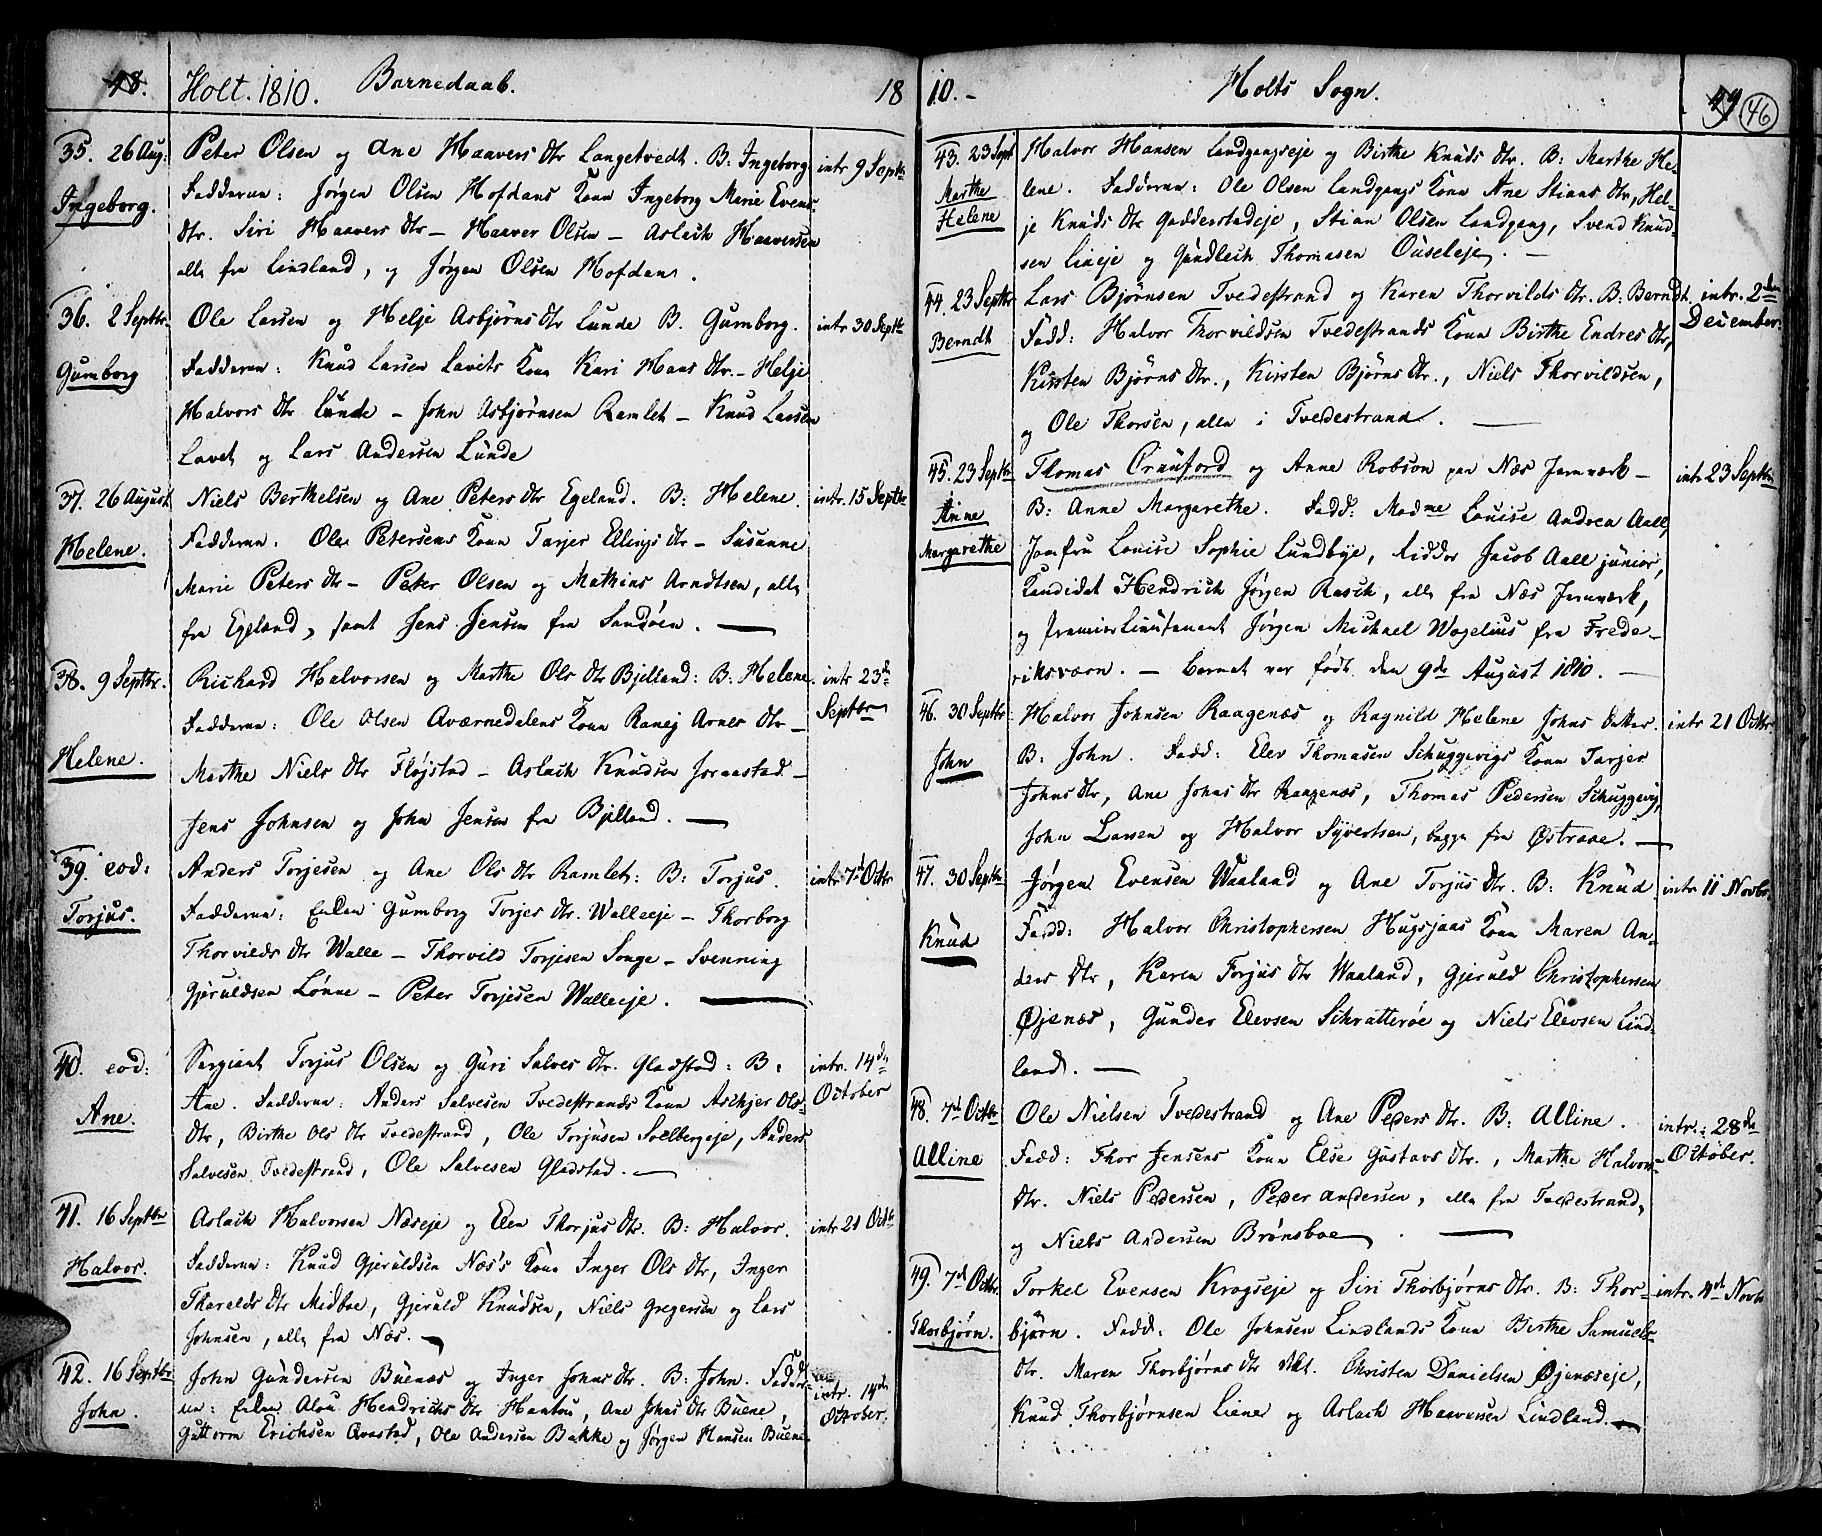 48.
Holt. 1810. Barnedaab. 18
35. 26 Aug: Peter Olsen og Ane Haavers Dtr Langetvedt. B: Ingeborg intr 9 Septbr
Ingeborg. Fadderne: Jørgen Olsen Hofdans Kone Ingeborg Marie Evens-
Dtr. Siri Haavers Dtr – Haaver Olsen – Aslach Haaversen
alle fra Lindland, og Jørgen Olsen Hofdan.
36. 2 Septbr. Ole Larsen og Helje Asbjørns Dtr Lunde B. Gumborg. intr 30 Septbr
Gumborg Fadderne: Knud Larsen Lavets Kone Kari Hans Dtr. – Helje
Halvors Dtr Lunde – John Asbjørnsen Ramlet – Knud Larsen
Lavet og Lars Andersen Lunde
37. 26 August Niels Berthelsen og Ane Peters Dtr Egeland. B: Helene. intr. 15 Septbr
Helene. Fadderne: Ole Petersens Kone Tarjer Ellings Dtr – Susanne
Marie Peters Dtr – Peter Olsen og Mathias Arndtsen, alle
fra Egeland, samt Jens Jensen fra Sandøen. —
38. 9 Septbr. Richard Halvorsen og Marthe Ols Dtr Bjelland: B: Helene. intr 23de
Septbr
Fadderne: Ole Olsen Aværnedalens Kone Ranej Arnes Dtr –
Helene. Marthe Niels Dtr Fløjstad – Aslach Knudsen Joraastad –
Jens Johnsen og John Jensen fra Bjelland. —
39. eod: Anders Torjesen og Ane Ols Dtr Ramlet: B: Torjus. intr 7d Octbr
Torjus. Fadderne: Enken Gumborg Torjes Dtr. Walleeje – Thorborg
Thorvilds Dtr Walle – Thorvild Torjesen Songe – Svenning
Gjeruldsen Lønne – Peter Torjesen Walleeje. —
40. eod: Sergiant Torjus Olsen og Guri Salves Dtr. Gladstad: B: intr. 14de
October
Ane. Ane. Fadderne: Anders Salvesen Tvedestrands Kone Aschjer Ols-
Dtr, Birthe Ols Dtr Tvedestrand, Ole Torjusen Soelbergeje, Anders
Salvesen Tvedestrand, Ole Salvesen Gladstad. —
41. 16 Septbr Aslach Halvorsen Næseje og Elen Thorjus Dtr. B: Halvor. intr 21 Octbr
Halvor. Fadderne: Knud Gjeruldsen Næs's Kone Inger Ols Dtr, Inger
Tharalds Dtr Midboe, Gjeruld Knudsen, Niels Gregersen og Lars
Johnsen, alle fra Næs. —
42. 16 Septbr John Gundersen Buenæs og Inger Johns Dtr. B: John. Fadder- intr. 14de
October.
John. ne: Enken Alou Hendrichs Dtr Hantou, Ane Johns Dtr Buene,
Guttorm Erichsen Qvastad, Ole Andersen Bakke og Jørgen Hansen Buene.
10. – Holts Sogn. 49 46
43. 23 Sept Halvor Hansen Landgangseje og Birthe Knuds Dtr. B: Marthe He-
Marthe
Helene lene. Fadderne: Ole Olsen Landgangs Kone Ane Stians Dtr, Hel-
je Knuds Dtr Gadderstadeje, Stian Olsen Landgang, Svend Knud-
sen Lieeje og Gundlech Thomasen Ouseleje. —
44. 23 Septbr Lars Bjørnsen Tvedestrand og Karen Thorvilds Dtr. B: Berndt. intr. 2den
December.
Berndt Fadd: Halvor Thorvildsen Tvedestrands Kone Birthe Endres Dtr,
Kirsten Bjørns Dtr., Kirsten Bjørns Dtr., Niels Thorvildsen,
og Ole Thorsen, alle i Tvedestrand. —
45. 23 Septbr Thomas Crauford og Anne Robson paa Næs Jernværk – intr 23 Septbr
Anne
Margarethe B: Anne Margarethe. Fadd: Madme Louise Andrea Aall,
Jomfru Louise Sophie Lundbye, Ridder Jacob Aall junior,
Kandidat Hendrich Jørgen Rasch, alle fra Næs Jernværk,
og Premier Lieutenant Jørgen Michael Wogelius fra Frede-
riksværn. – Barnet var født den 9de August 1810. –
46. 30 Septbr Halvor Johnsen Raagenæs og Ragnild Helene Johns Datter. intr 21 Octbr
John B: John. Fadd: Elev Thomasen Schuggevigs Kone Tarjer
Johns Dtr, Ane Johns Dtr Raagenæs, Thomas Pedersen Schuggevig,
John Larsen og Halvor Syvertsen, begge fra Østeraae. —
47. 30 Septbr Jørgen Evensen Waaland og Ane Torjus Dtr. B: Knud intr 11 Novbr.
Knud Fadd: Halvor Christophersen Hugsjaas Kone Maren An-
ders Dtr, Karen Torjus Dtr Waaland, Gjeruld Christophersen
Øjenæs, Gunder Elevsen Schratterøe og Niels Elevsen Lind-
land. —
48. 7d Octbr Ole Nielsen Tvedestrand og Ane Peders Dtr. B: Alline. intr: 28de
October.
Alline Fadd: Thor Jensens Kone Else Gustavs Dtr., Marthe Halvors-
Dtr. Niels Pedersen, Peder Andersen, alle fra Tvedestrand,
og Niels Andersen Brønsboe. —
49. 7d Octbr. Torkel Evensen Krogseje og Siri Thorbjørns Dtr. B: Thor- intr. 4d Novbr
Thorbjørn. bjørn. Fadd: Ole Johnsen Lindlands Kone Birthe Samuels-
Dtr. Maren Thorbjørns Dtr ibd. Christen Danielsen Øjenæseje,
Knud Thorbjørnsen Liene og Aslach Haaversen Lindland. —